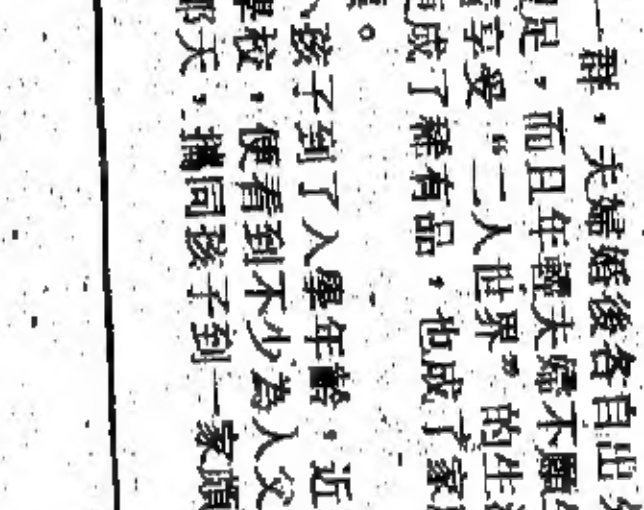 一群，夫婦婚後各自出
足，而且年輕夫婦不願
享受“二人世界”的生
成了稀有品，也成了家
孩子到了入學年齡，近
學校，便看到不少為人父
天，攜同孩子到一家